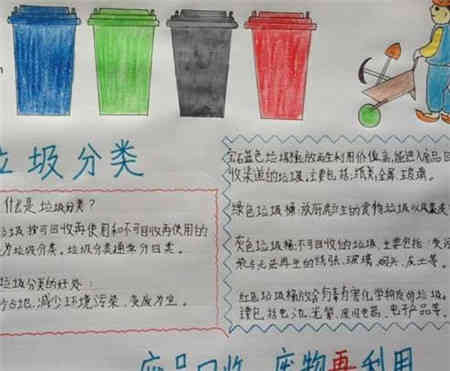 垃圾分类
什么是垃圾分类？
垃圾按可回收再使用和不可回收再使用的
为垃圾分类。垃圾分类通常分四类。
垃圾分类的好处：
占地、减少环境污染、变废为宝。
宝石蓝色垃圾桶：放再生利用价值高，能进入废品回
收渠道的垃圾，主要包括：纸类、金属、玻璃。
绿色垃圾桶：放厨房产生的食物垃圾以及果皮
灰色垃圾桶：不可回收的垃圾，主要包括：受污
染与无法再生的纸张、玻璃、砖头、灰土等。
红色垃圾桶放含有毒有害化学物质的垃圾。
要包括电池、光管、废旧电器、电子产品等。
废品回收 废物再利用